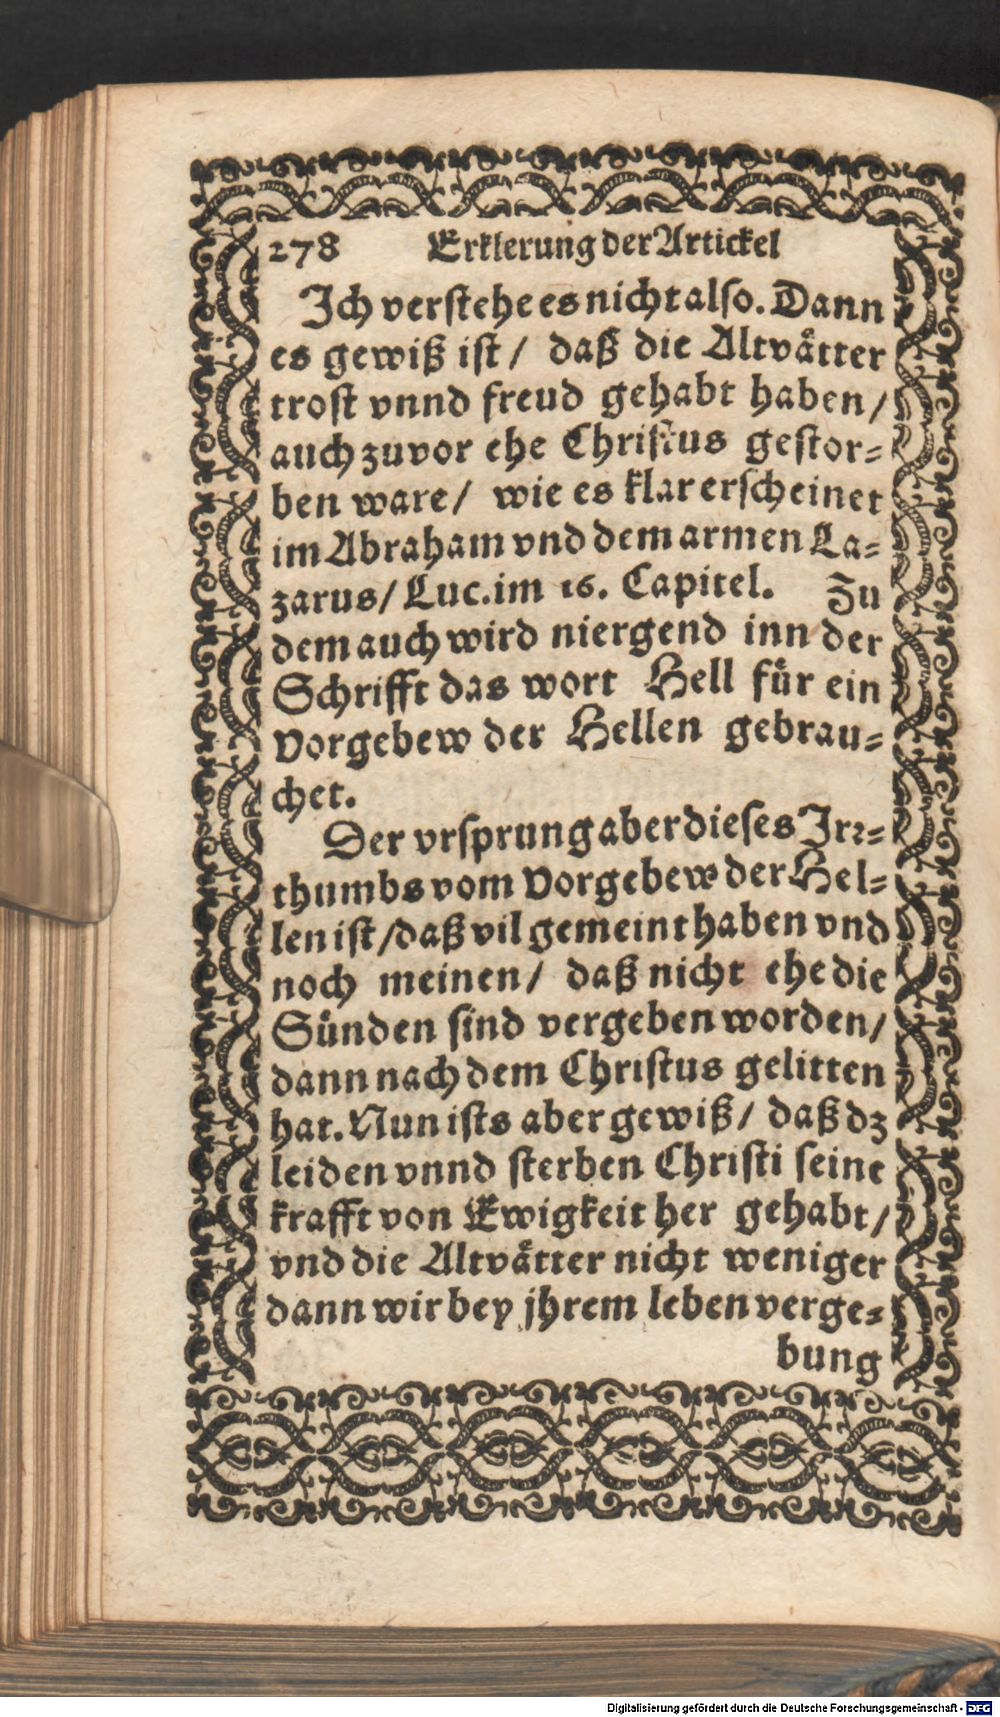 278 Erklerung der Artickel
Ich verstehe es nicht also. Dann
es gewiß ist / daß die Altvåtter
trost vnnd freud gehabt haben /
auch zuvor ehe Christus gestor⸗
ben ware / wie es klar erscheinet
im Abraham vnd dem armen La⸗
zarus / Luc. im 16. Capitel. Zu
dem auch wird niergend inn der
Schrifft das wort Hell fůr ein
Vorgebew der Hellen gebrau⸗
chet.
Der vrsprung aber dieses Irr⸗
thumbs vom Vorgebew der Hel⸗
len ist / daß vil gemeint haben vnd
noch meinen / daß nicht ehe die
Sůnden sind vergeben worden /
dann nach dem Christus gelitten
hat. Nun ists aber gewiß / daß dz
leiden vnnd sterben Christi seine
krafft von Ewigkeit her gehabt /
vnd die Altvåtter nicht weniger
dann wir bey jhrem leben verge⸗
bung
Digitalisierung gefördert durch die Deutsche Forschungsgemeinschaft - DFG